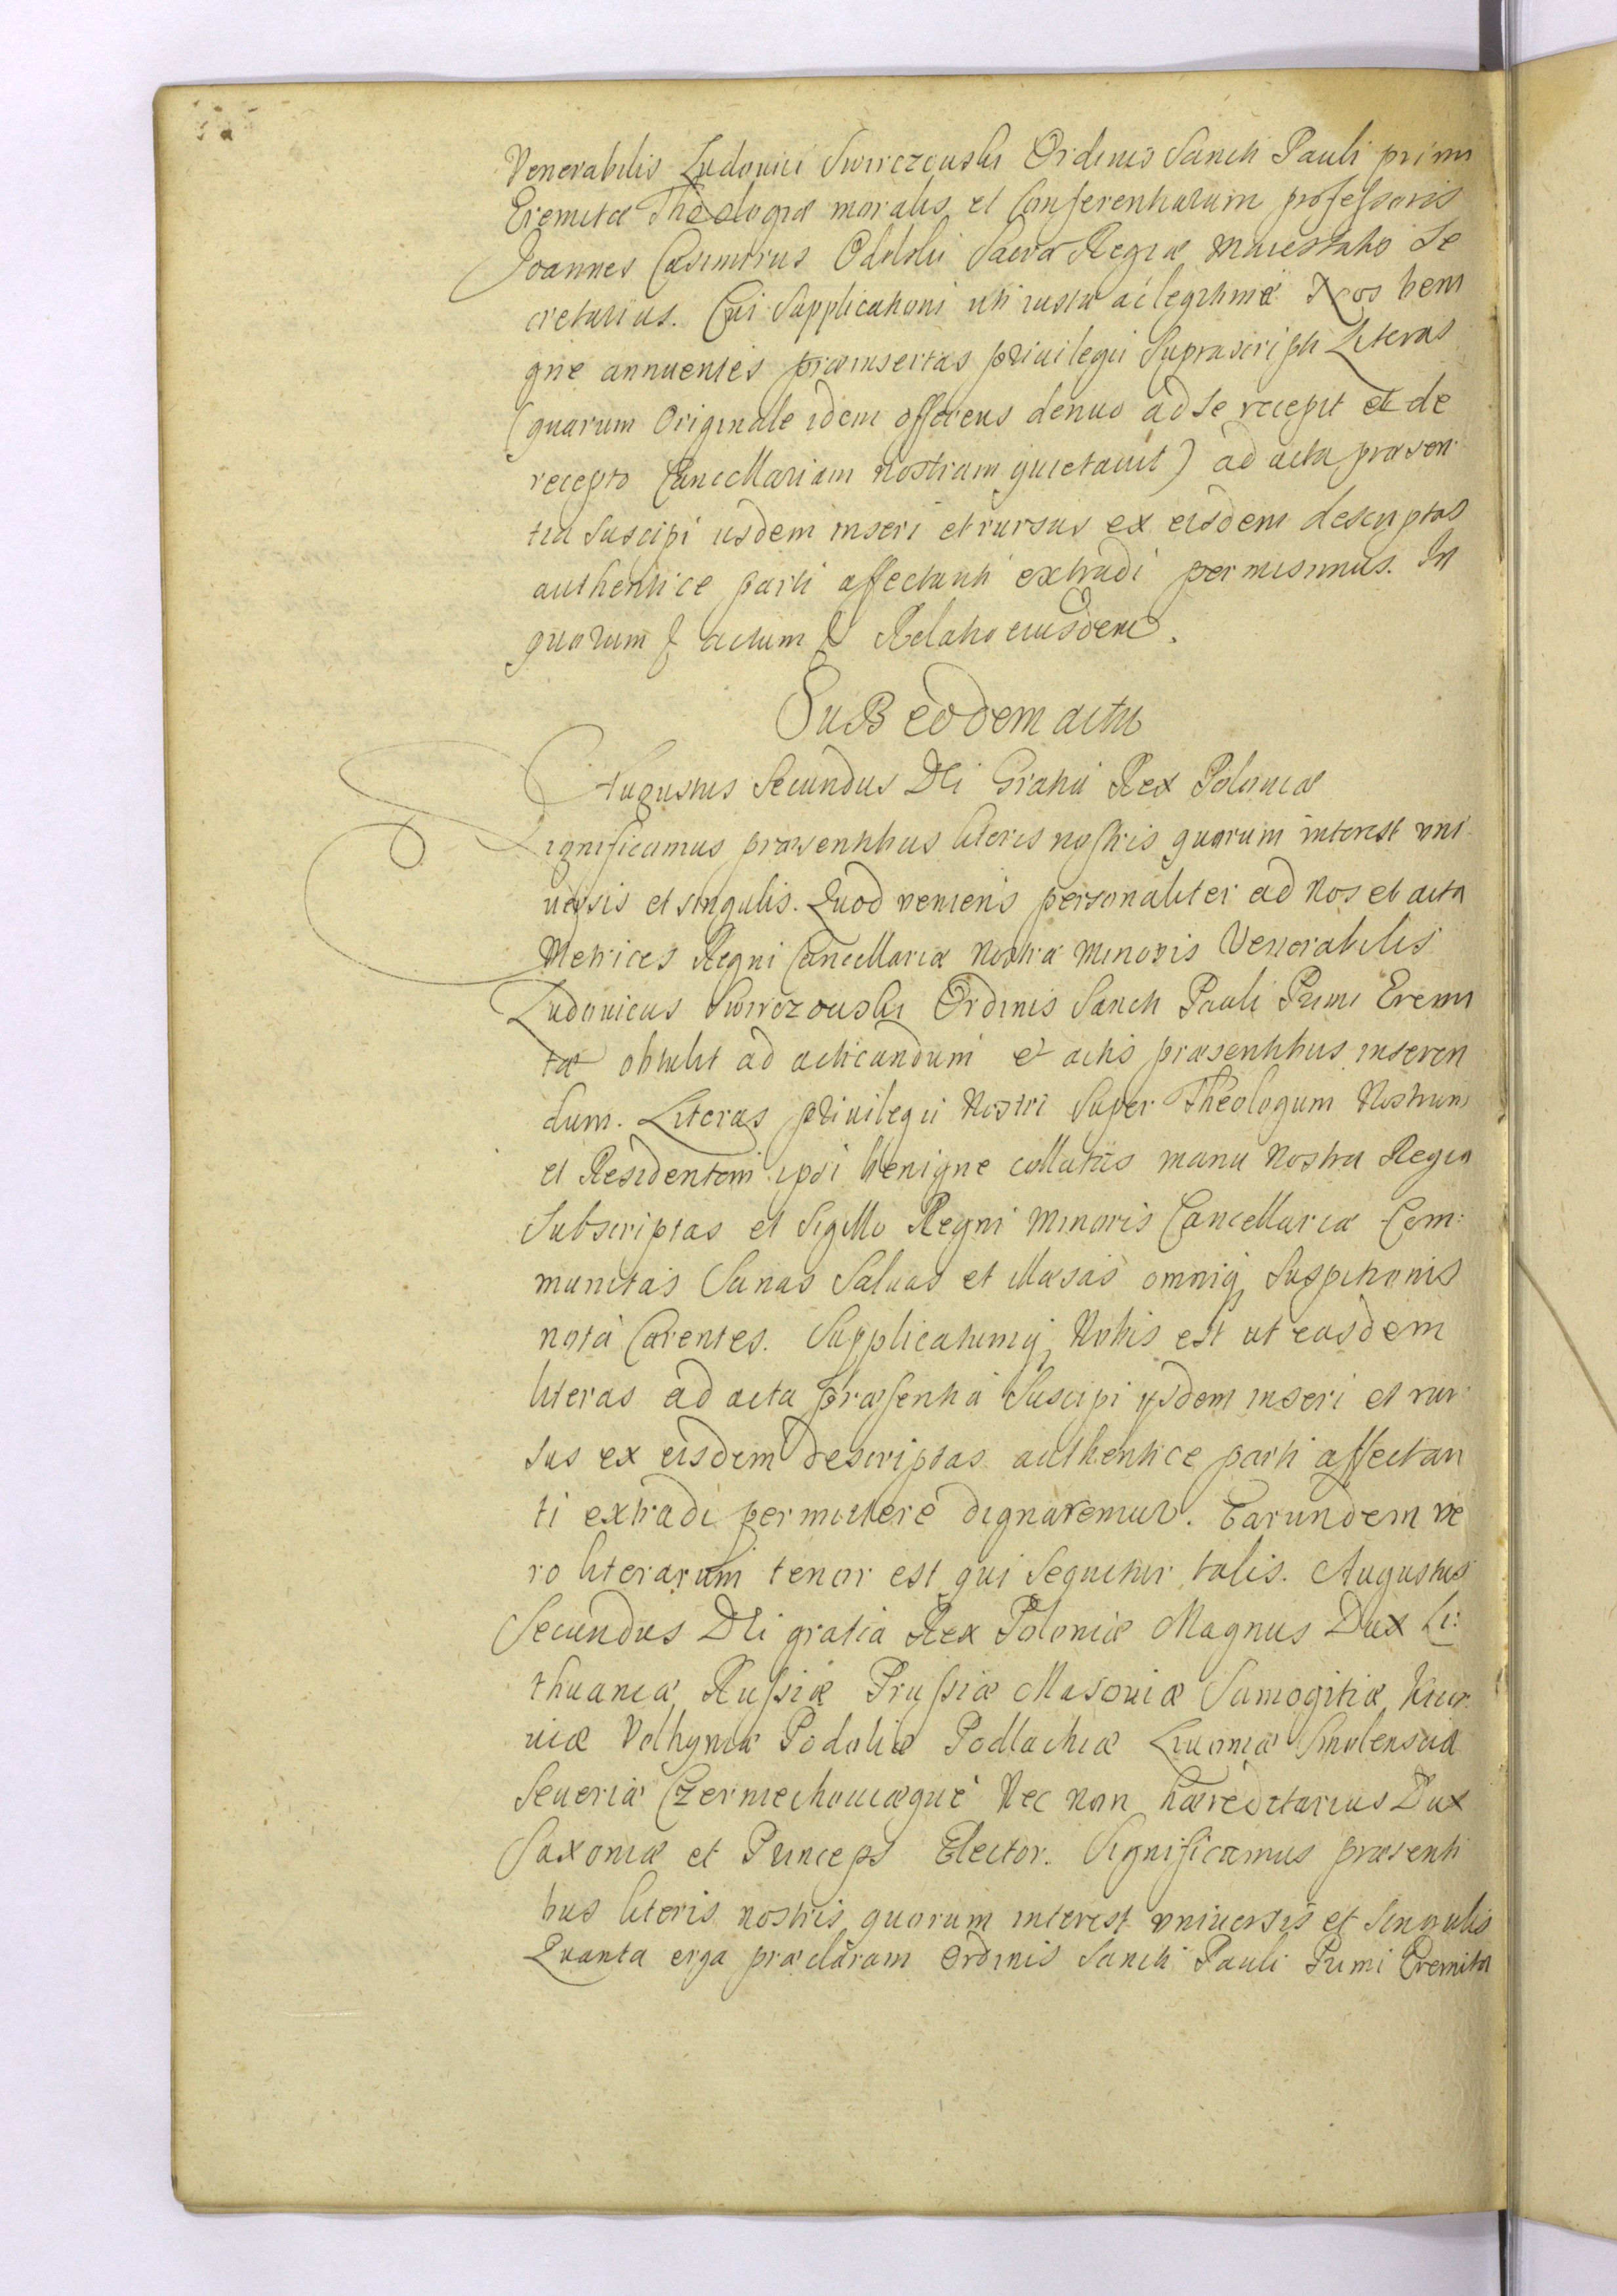 Venerabilis Ludovici Swirczouski Ordinis Sancti Pauli primi
Eremitæ Theologiæ moralis et Conferentiarum professoris
Joannes Casimirus Sacræ Regiæ Maiestatis Se
cretarius. Cui Supplicationi uti iustæ ac legitimæ Nos beni
gne annuentes præinsertas privilegii Suprascripti Literas
(quarum Originale idem offerens denuo ad se recepit et de
recepto Cancellariam Nostram quietavit) ad acta præsen
tia suscipi iisdem inseri et rursus ex eisdem descriptas
authentice parti affectanti extradi permisimus. In
quorum & actum & Relatio eiusdem.
SuB eodem actu
Augustus Secundus DEi Gratia Rex Poloniæ
Significamus præsentibus literis nostris quorum interest uni
versis et singulis. Quod veniens personaliter ad Nos et acta
Metrices Regni Cancellariæ Nostræ Minoris Venerabilis
Ludovicus Swirczouski Ordinis Sancti Pauli Primi Eremi
tæ obtulit ad acticandum et actis præsentibus inseren
dum. Literas privilegii Nostri Super Theologum Nostrum
et Residentem ipsi benigne collatus manu Nostra Regia
Subscriptas et Sigillo Regni Minoris Cancellariæ Com:
munitas Sanas Salvas et illæsas omniq; Suspitionis
nota Carentes. Supplicatumq; Nobis est ut easdem
literas ad acta præsentia Suscipi ysdem inseri et rur
sus ex eisdem descriptas authentice parti affectan
ti extradi permittere dignaremur. Earundem ve
ro literarum tenor est qui Sequitur talis. Augustus
Secundus DEi gratia Rex Poloniæ Magnus Dux Li:
thuaniæ Russiæ Prussiæ Masoviæ Samogitiæ Kiio
viæ Volhyniæ Podoliæ Podlachiæ Livoniæ Smolensciæ
Severiæ Czerniechoviæque Nec Non hæreditarius Dux
Saxoniæ et Princeps Elector. Significamus præsenti
bus literis nostris quorum interest universis et Singulis
Quanta erga præclaram Ordinis Sancti Pauli Primi Eremitæ